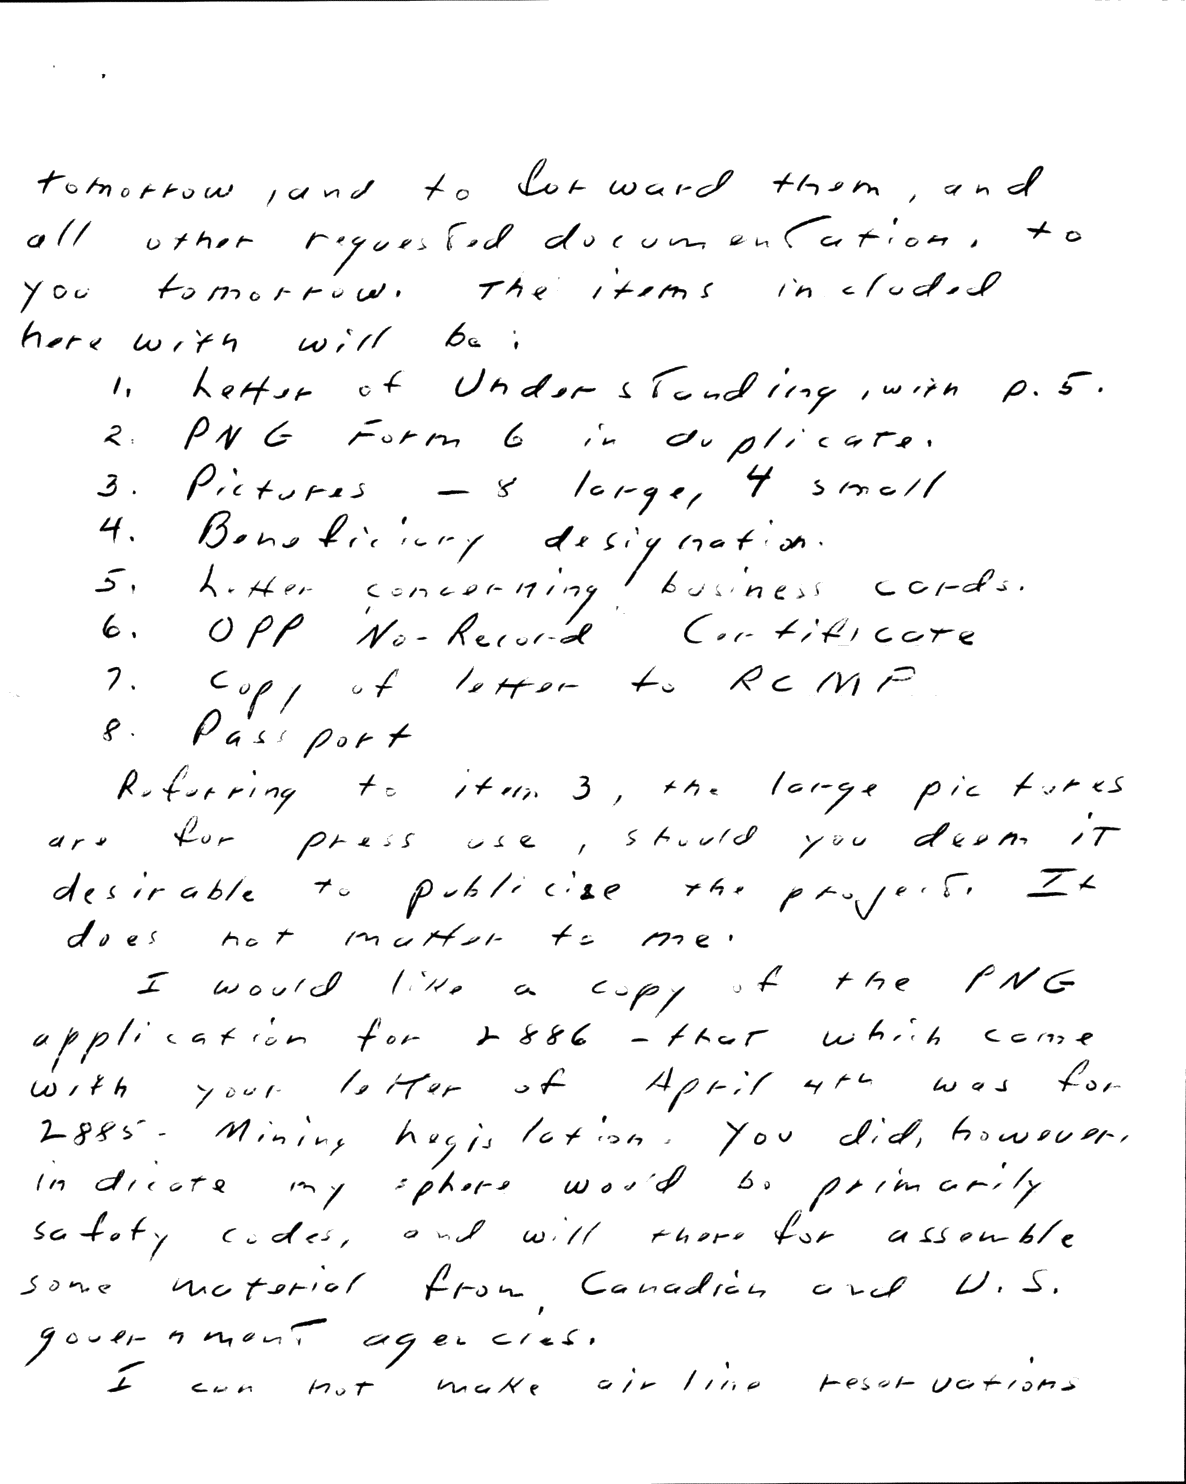 tomorrow, and to forward them, and
all other requested documentation, to
you tomorrow. The items included
herewith will be:
1. Letter of Understanding, with p. 5.
2. PNG Form 6 in duplicate.
3. Pictures — 8 large, 4 small
4. Beneficiary designation.
5. Letter concerning business cards.
6. OPP No-Record Certificate
7. Copy of letter to RCMP
8. Passport
Referring to item 3, the large pictures
are for press use, should you deem it
desirable to publicize the project. It
does not matter to me.
I would like a copy of the PNG
application for 2886 - that which came
with your letter of April 4th was for
2885 - Mining Legislation. You did, however,
indicate my sphere would be primarily
safety codes, and will therefor assemble
some material from Canadian and U.S.
government agencies.
I can not make airline reservations